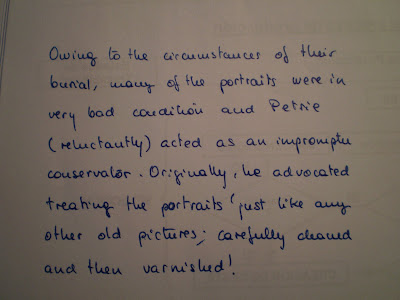 Owing to the circumstances of their
burial, many of the portraits were in
very bad condition and Petrie
(reluctantly) acted as an impromptu
conservator. Originally, he advocated
treating the portraits 'just like any
other old pictures; carefully cleaned
and then varnished!